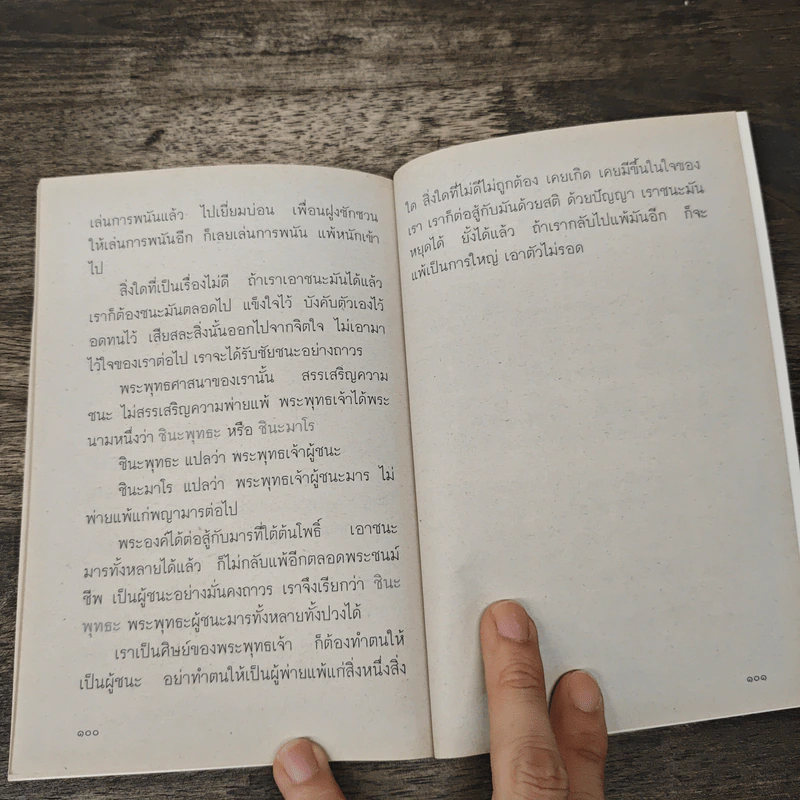 เล่นการพนันแล้ว ไปเยี่ยมบ่อน เพื่อนฝูงชักชวน
ให้เล่นการพนันอีก ก็เลยเล่นการพนัน แพ้หนักเข้า
ไป
สิ่งใดที่เป็นเรื่องไม่ดี ถ้าเราเอาชนะมันได้แล้ว
เราก็ต้องชนะมันตลอดไป แข็งใจไว้ บังคับตัวเองไว้
อดทนไว้ เสียสละสิ่งนั้นออกไปจากจิตใจ ไม่เอามา
ไว้ใจของเราต่อไป เราจะได้รับชัยชนะอย่างถาวร
พระพุทธศาสนาของเรานั้น สรรเสริญความ
ชนะ ไม่สรรเสริญความพ่ายแพ้ พระพุทธเจ้าได้พระ
นามหนึ่งว่า ชินะพุทธะ หรือ ชินะมาโร
ชินะพุทธะ แปลว่า พระพุทธเจ้าผู้ชนะ
ชินะมาโร แปลว่า พระพุทธเจ้าผู้ชนะมาร ไม่
พ่ายแพ้แก่พญามารต่อไป
พระองค์ได้ต่อสู้กับมารที่ใต้ต้นโพธิ์ เอาชนะ
มารทั้งหลายได้แล้ว ก็ไม่กลับแพ้อีกตลอดพระชนม์
ชีพ เป็นผู้ชนะอย่างมั่นคงถาวร เราจึงเรียกว่า ชินะ
พุทธะ พระพุทธะผู้ชนะมารทั้งหลายทั้งปวงได้
เราเป็นศิษย์ของพระพุทธเจ้า ก็ต้องทำตนให้
เป็นผู้ชนะ อย่าทำตนให้เป็นผู้พ่ายแพ้แก่สิ่งหนึ่งสิ่ง
๑๐๐
ใด สิ่งใดที่ไม่ดีไม่ถูกต้อง เคยเกิด เคยมีขึ้นในใจของ
เรา เราก็ต่อสู้กับมันด้วยสติ ด้วยปัญญา เราชนะมัน
หยุดได้ ยั้งได้แล้ว ถ้าเรากลับไปแพ้มันอีก ก็จะ
แพ้เป็นการใหญ่ เอาตัวไม่รอด
๑๐๑